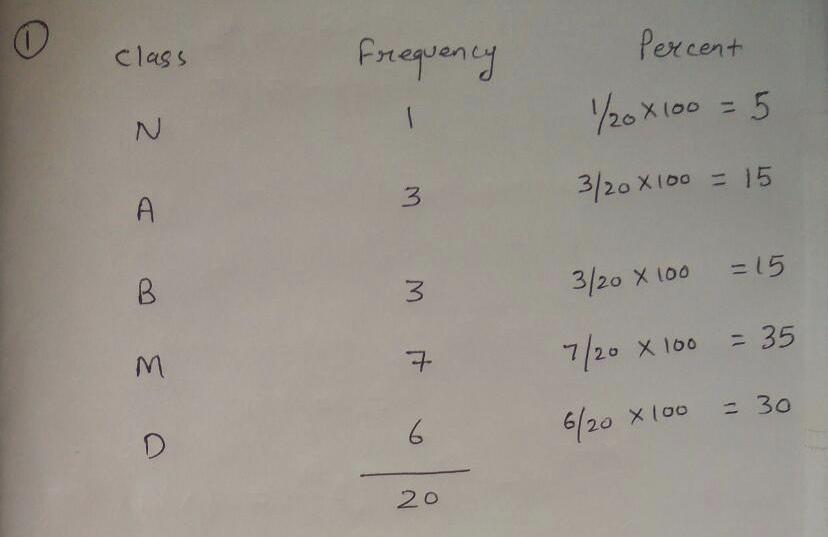 ① Class Frequency Percent
N 1 1/20 × 100 = 5
A 3 3/20 × 100 = 15
B 3 3/20 × 100 = 15
M 7 7/20 × 100 = 35
D 6 6/20 × 100 = 30
20